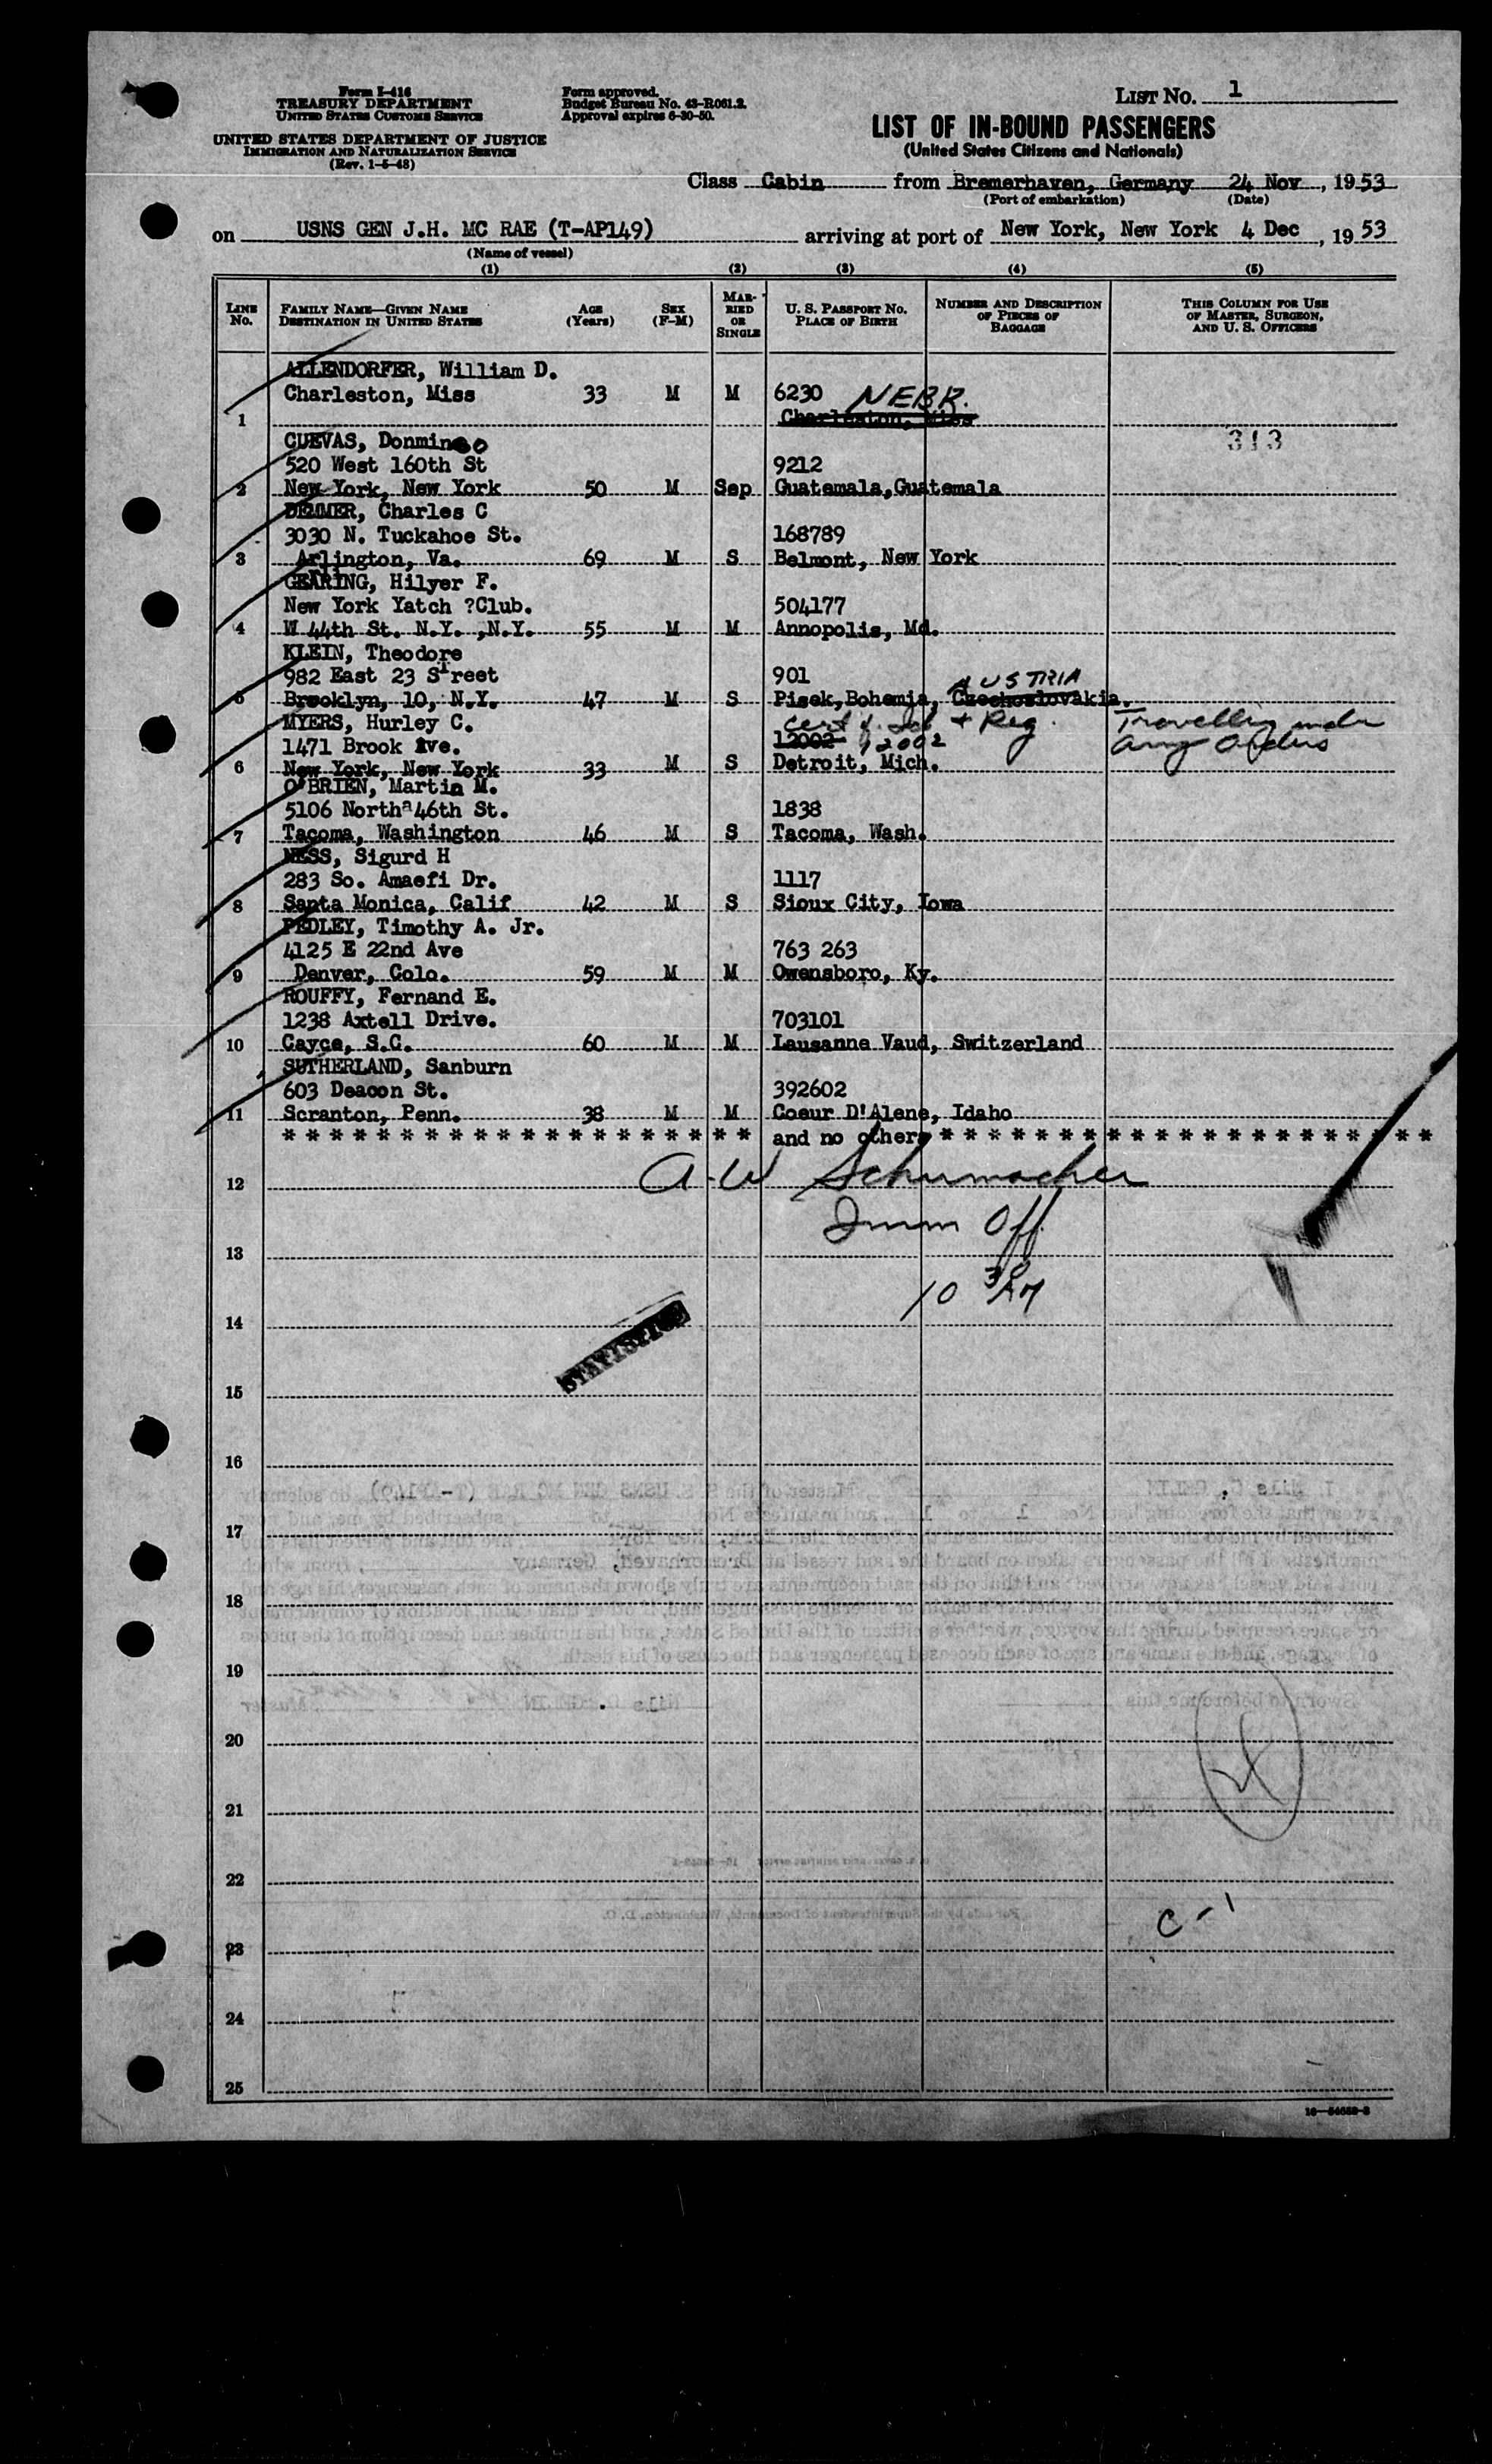 Form I-416
TREASURY DEPARTMENT
UNITED STATES CUSTOMS SERVICE
UNITED STATES DEPARTMENT OF JUSTICE
IMMIGRATION AND NATURALIZATION SERVICE
(Rev. 1-5-48)
Form approved.
Budget Bureau No. 43-R061.2.
Approval expires 6-30-50.
LIST NO. 1
LIST OF IN-BOUND PASSENGERS
(United States Citizens and Nationals)
Class Cabin from Bremerhaven, Germany 24 Nov, 1953
(Port of embarkation) (Date)
on USNS GEN J.H. MC RAE (T-AP149) arriving at port of New York, New York 4 Dec, 19 53
(Name of vessel)
(1) (2) (3) (4) (5)
LINE NO. FAMILY NAME—GIVEN NAME DESTINATION IN UNITED STATES AGE (Years) SEX (F-M) MARRIED OR SINGLE U. S. PASSPORT NO. PLACE OF BIRTH NUMBER AND DESCRIPTION OF PIECES OF BAGGAGE THIS COLUMN FOR USE OF MASTER, SURGEON, AND U. S. OFFICERS
ALLENDORFER, William D.
Charleston, Miss 33 M M 6230 NEBR.
1 Charleston, Miss
CUEVAS, Donmingo 313
520 West 160th St 9212
2 New York, New York 50 M Sep Guatemala,Guatemala
DEMMER, Charles C
3030 N. Tuckahoe St. 168789
3 Arlington, Va. 69 M S Belmont, New York
GEARING, Hilyer F.
New York Yatch ?Club. 504177
4 W 44th St. N.Y. ,N.Y. 55 M M Annopolis, Md.
KLEIN, Theodore
982 East 23 Street 901 AUSTRIA
5 Brooklyn, 10, N.Y. 47 M S Pisek,Bohemia, Czechoslovakia.
MYERS, Hurley C. Cert of Id + Reg. Travelling under
1471 Brook Ave. 12002 12002 Army Orders
6 New York, New York 33 M S Detroit, Mich.
O'BRIEN, Martin M.
5106 North 46th St. 1838
7 Tacoma, Washington 46 M S Tacoma, Wash.
NESS, Sigurd H
283 So. Amaefi Dr. 1117
8 Santa Monica, Calif 42 M S Sioux City, Iowa
PEDLEY, Timothy A. Jr.
4125 E 22nd Ave 763 263
9 Denver, Colo. 59 M M Owensboro, Ky.
ROUFFY, Fernand E.
1238 Axtell Drive. 703101
10 Cayce, S.C. 60 M M Lausanne Vaud, Switzerland
SUTHERLAND, Sanburn
603 Deacon St. 392602
11 Scranton, Penn. 38 M M Coeur D'Alene, Idaho
* * * * * * * * * * * * * * * * * * * * and no others * * * * * * * * * * * * * * * * * * * * *
12 A.W Schumacher
Imm Off.
13
10 30 AM
14
STATISTICS
15
16
17
18
19
20
21
22
C-1
23
24
25
16—54659-2